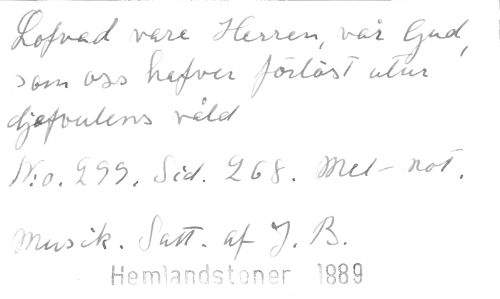 Lofvad vare Herren, vår Gud,
som oss hafver förlöst utur
djefvulens våld
N:o. 299. Sid. 268. Mel-not.
Musik. Satt. af J. B.
Hemlandstoner 1889